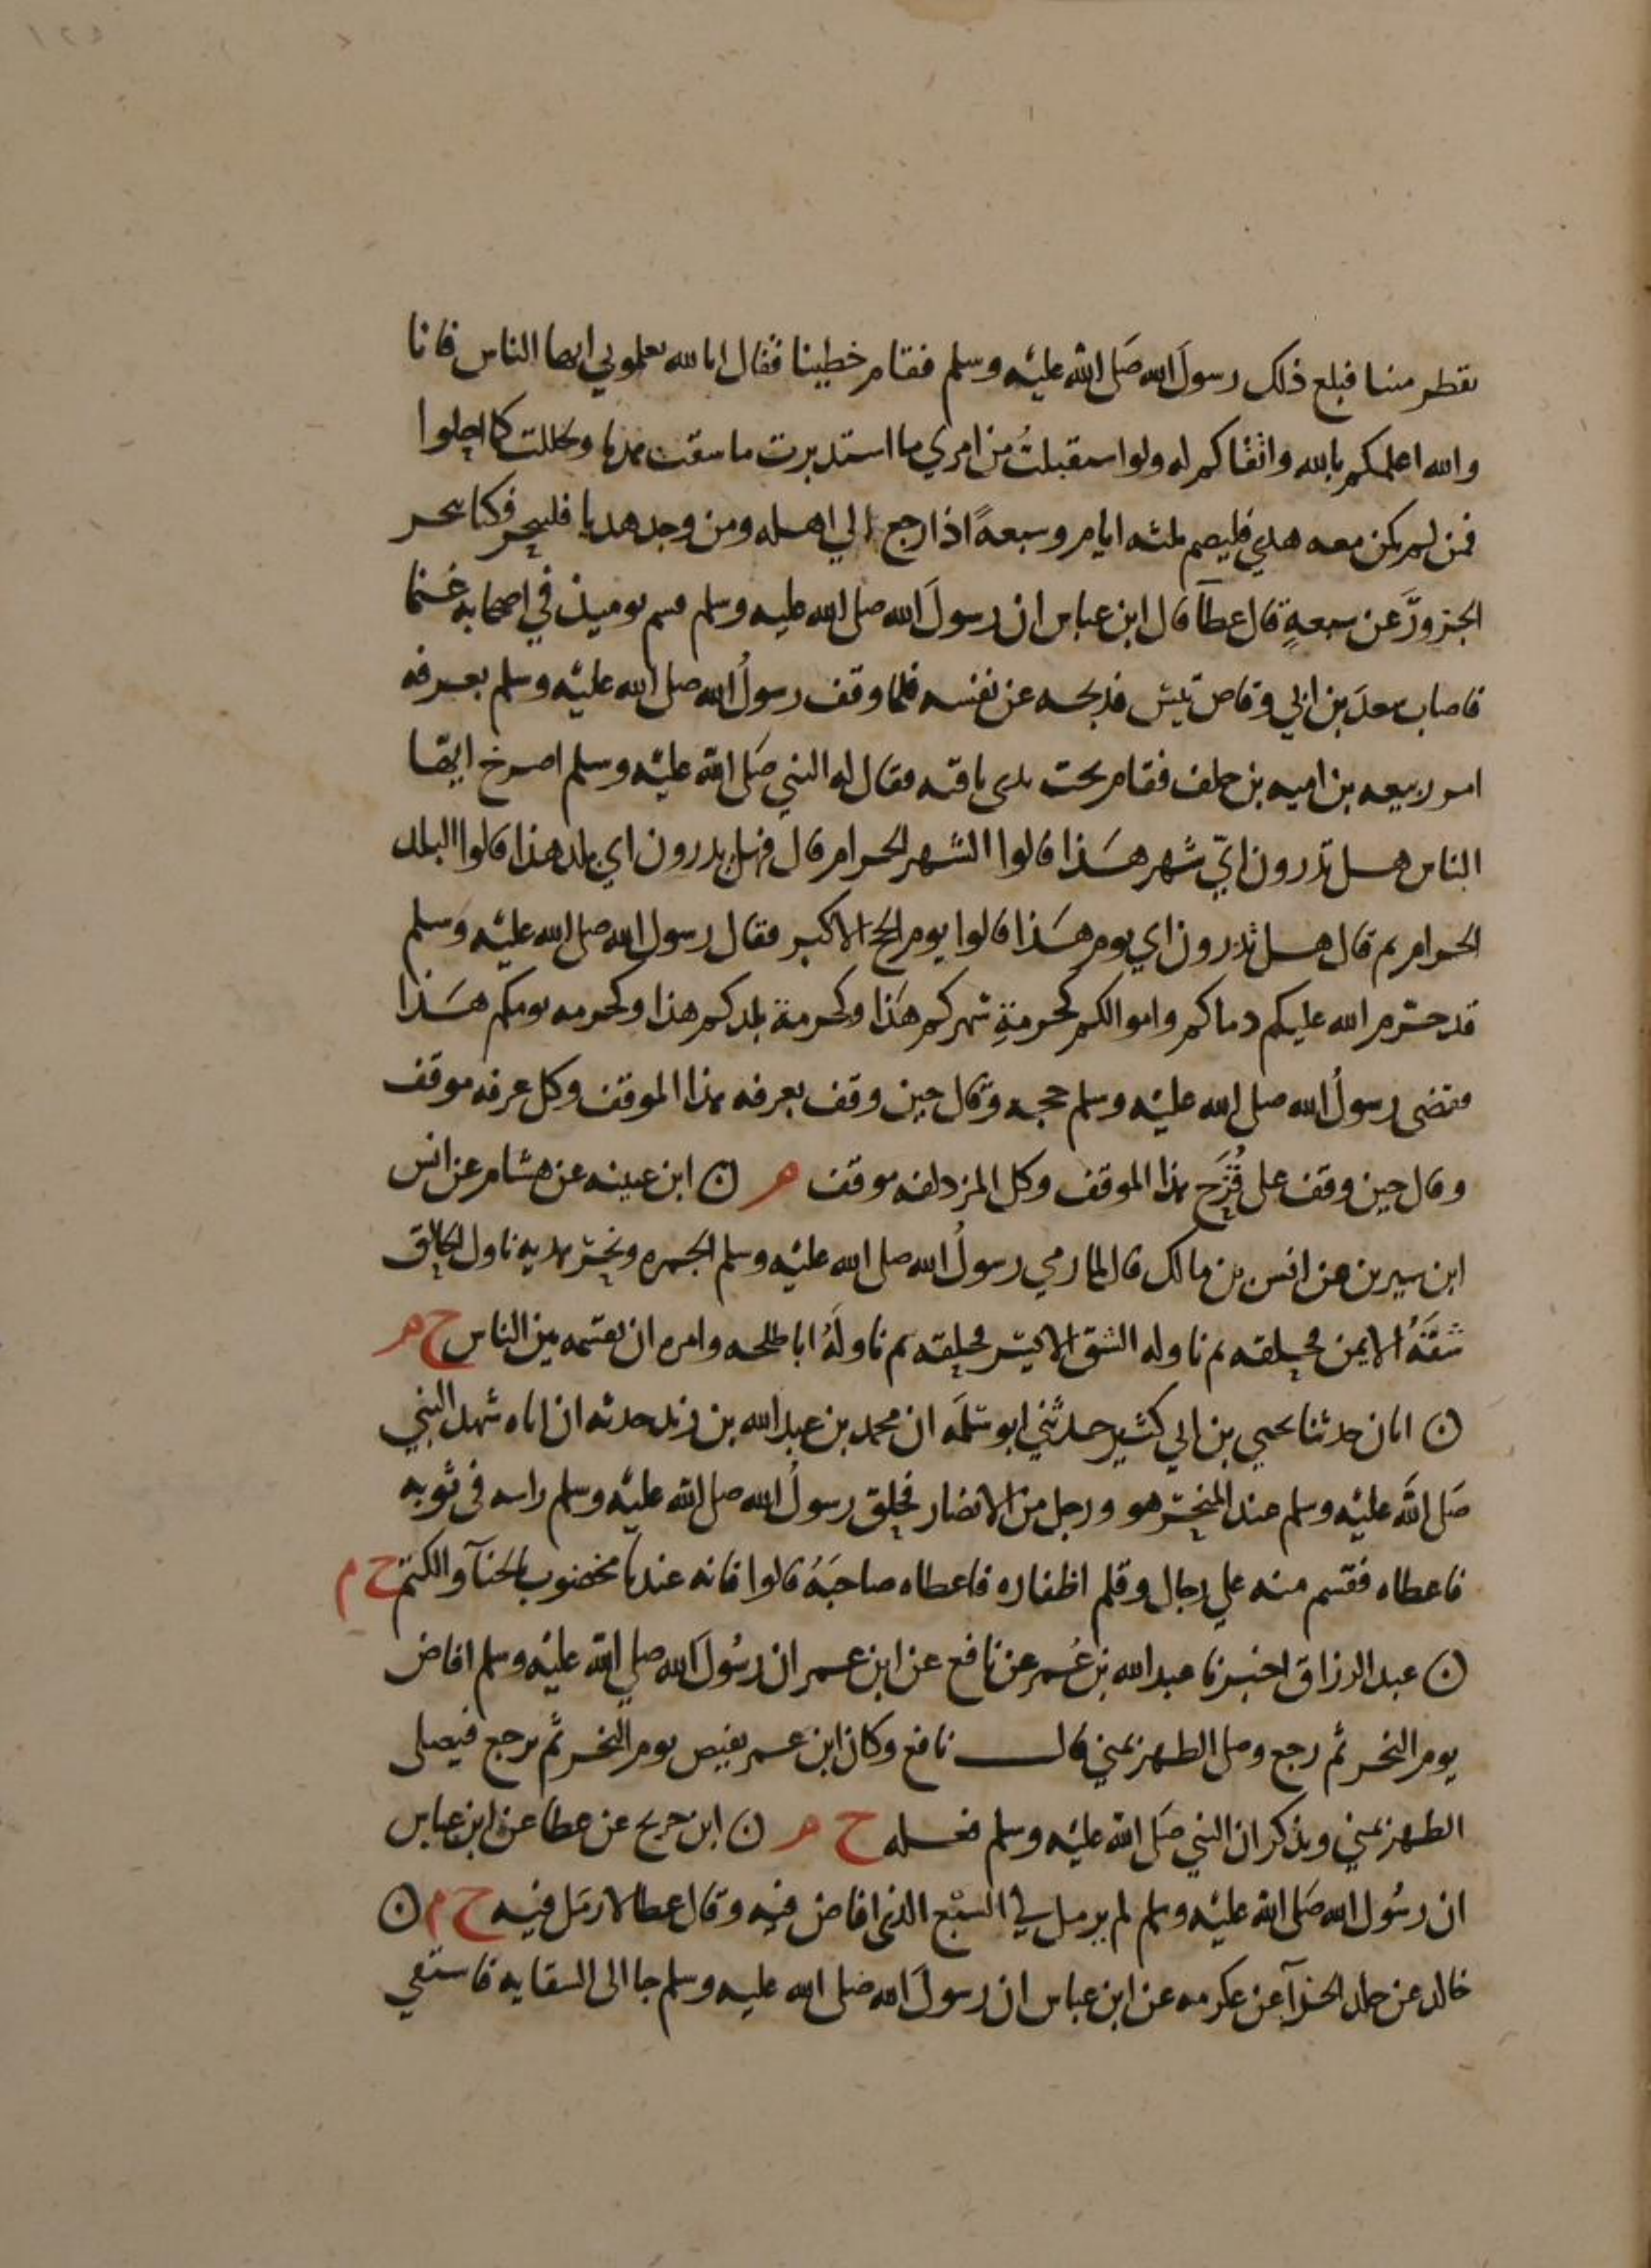 يقطر منيا فبلغ ذلك رسول الله صلى الله عليه وسلم فقام خطيبنا فقال ابالله تعلموني ايها الناس فانا
والله اعلمكم بالله واتقاكم له ولو استقبلتُ من امري ما استدبرت ما سقت هديا وحللت كما احلوا
فمن لم يكن معه هدي فليصم ثلثه ايام وسبعةً اذا رجع الي اهله ومن وجد هديا فلينحر فكنا ننحر
الجزورَ عن سبعةٍ قال عطآ قال ابن عباس ان رسولَ الله صلى الله عليه وسلم قسم يوميذ في اصحابه غنما
فاصاب سعدَ بن ابي وقاص تيس فذبحه عن نفسه فلما وقف رسولُ الله صلى الله عليه وسلم بعرفه
امر ربيعه بن اميه بن خلف فقام تحت يدى ناقته فقال له النبي صَلى الله عليه وسلم اصرخ ايها
الناس هل تدرون ايّ شهر هَذا قالوا الشهر الحرام قال فهل تدرون اي بلد هذا قالوا البلد
الحرام ثم قال هل تدرون اي يوم هَذا قالوا يوم الحج الاكبر فقال رسول الله صلى الله عليه وسلم
قد حرّم الله عليكم دماكم واموالكم كحرمةِ شهركم هَذا وكحرمة بلدكم هذا وكحرمه يومكم هَذا
فقضى رسولُ الله صلى الله عليه وسلم حجه وقال حين وقف بعرفه هذا الموقف وكل عرفه موقف
وقال حين وقف على قُزَح هذا الموقف وكل المزدلفه موقف ھ ن ابن عيينه عن هشام عن انس
ابن سيرين عن انس بن مالك قال لما رمي رسولُ الله صلى الله عليه وسلم الجمره ونحر هديه ناول الحلاق
شقَّهُ الايمن فحلقه ثم ناوله الشق الايسر فحلقه ثم ناولَهُ ابا طلحه وامره ان يقسمه بين الناس خ ھ
ن ابان حدثنا يحيي بن ابي كثير حدثني ابو سلمَه ان محمد بن عبد الله بن زيد حدثه ان اباه شهد النبي
صَلى اللهُ عليه وسلم عند المنحر هو ورجل من الانصار فحلق رسولُ الله صلى الله عليه وسلم راسه في ثوبه
فاعطاه فقسم منه علي رجال وقلم اظفاره فاعطاه صاحبَهُ قالوا فانه عندنا مخضوب بالحنآ والكتم ح م
ن عبد الرزاق اخبرنا عبد الله بن عُمر عن نافع عن ابن عمر ان رسُولَ الله صلي الله عليه وسلم افاض
يوم النحر ثم رجع وصلى الظهر بمني قال نافع وكان ابن عمر يفيض يوم النحر ثم يرجع فيصلى
الظهر بمني ويذكر ان النبي صَلى الله عليه وسلم فعله خ ھ ن ابن جريج عن عطا عن ابن عباس
ان رسُول الله صَلى الله عليه وسلم لم يرمل في السبْع الذي افاض فيه وقال عطا لا رمَل فيه ح م ن
خالد عن خالد الحذآ عن عكرمه عن ابن عباس ان رسولَ الله صلى الله عليه وسلم جا الى السقايه فاستقي